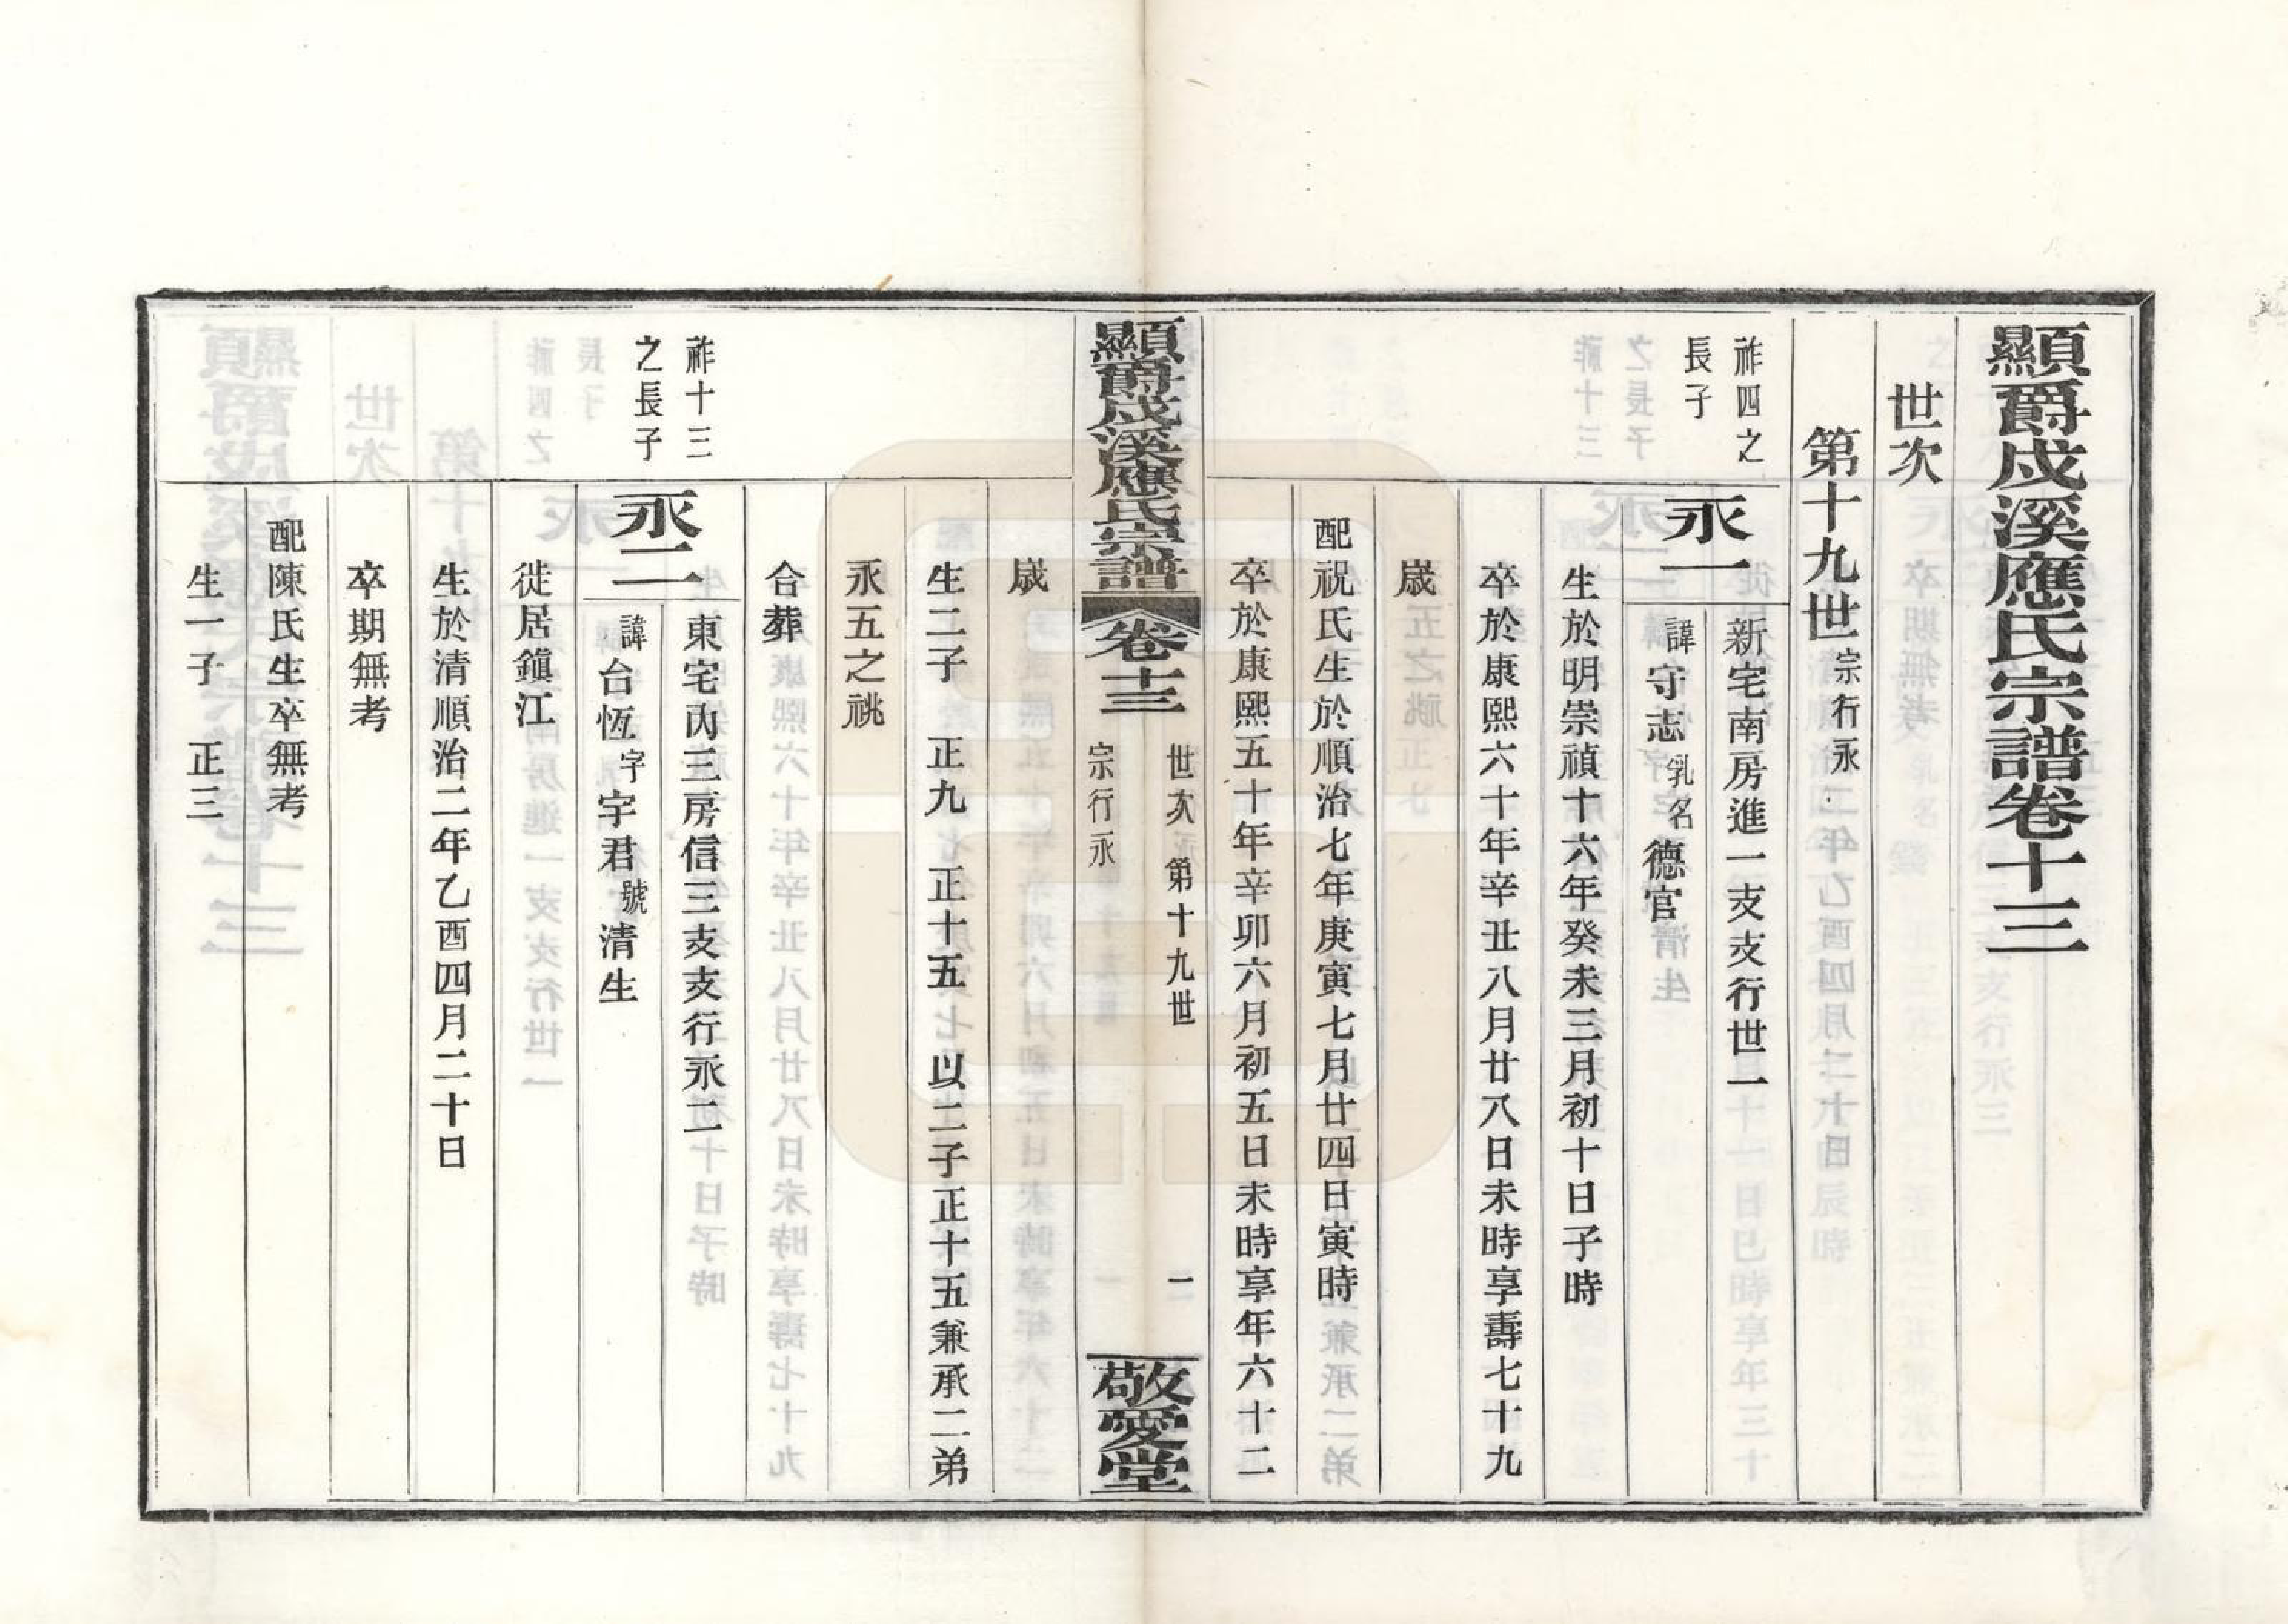 顯爵戍溪應氏宗譜卷十三
世次
第十九世宗行永
祚四之
長子
永一
新宅南房進一支支行世一
諱守志乳名德官
生於明崇禎十六年癸未三月初十日子時
卒於康熙六十年辛丑八月廿八日未時享壽七十九
歲
配祝氏生於順治七年庚寅七月廿四日寅時
卒於康熙五十年辛卯六月初五日未時享年六十二
顯爵戍溪應氏宗譜 卷十三
世次 第十九世
宗行永
二
敬愛堂
歲
生二子 正九 正十五 以二子正十五兼承二弟
永五之祧
合葬
祚十三
之長子
永二
東宅內三房信三支支行永二
諱台恆字宇君號清生
徙居鎮江
生於清順治二年乙酉四月二十日
卒期無考
配陳氏生卒無考
生一子 正三